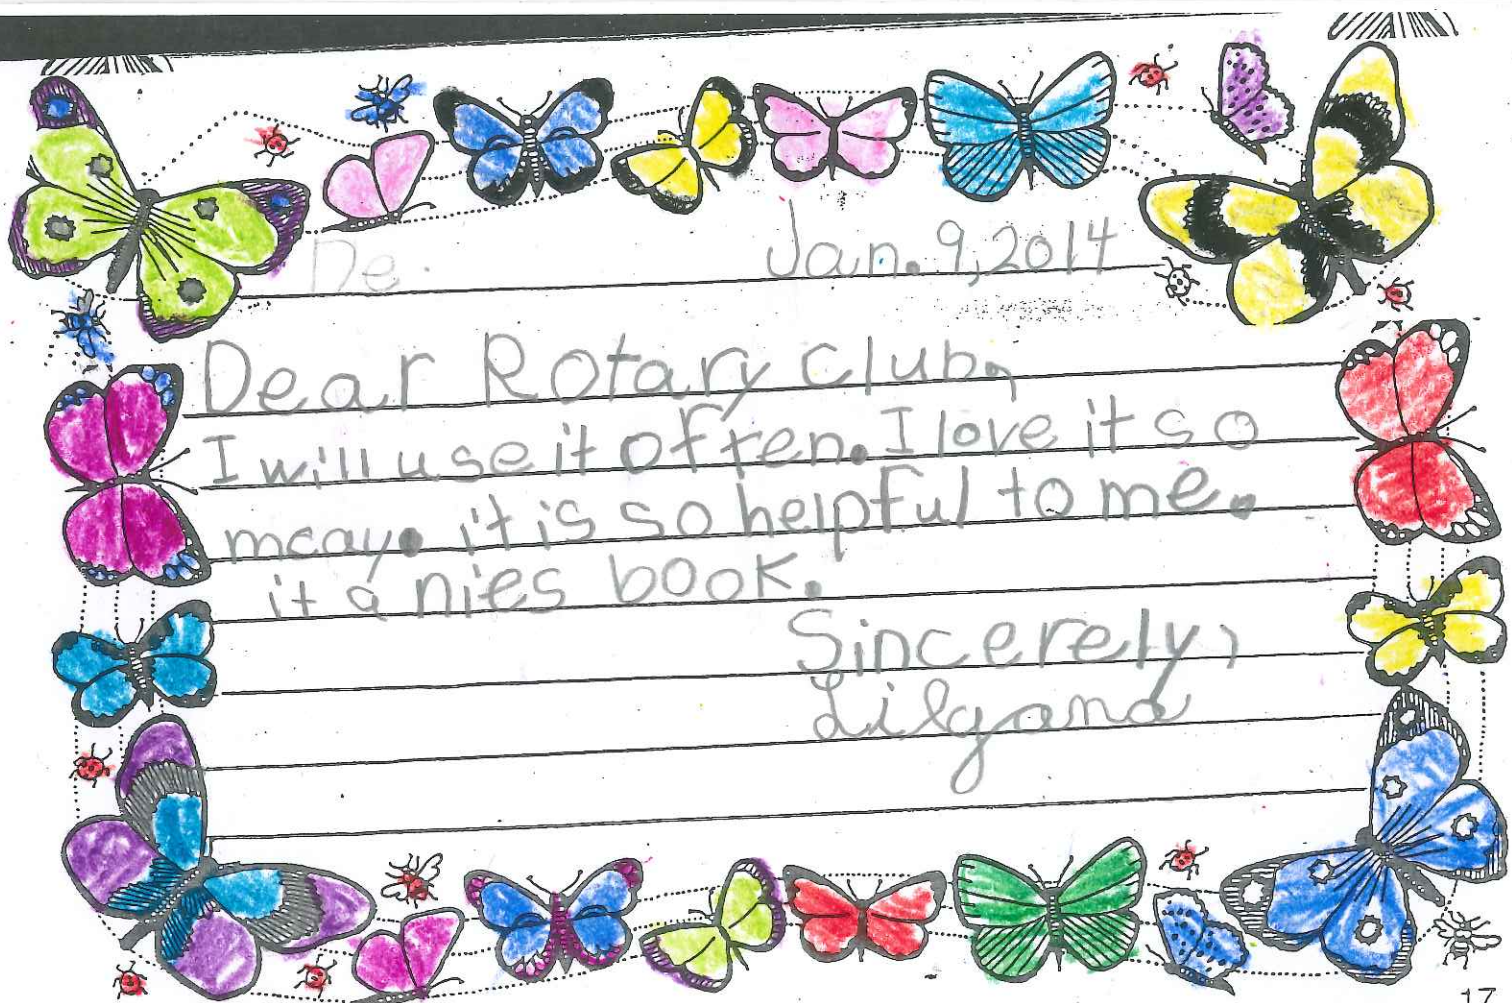 De Jan. 9, 2014
Dear Rotary Club,
I will use it often. I love it so
mcay. it is so helpful to me.
it a nies book.
Sincerely,
Lilyana
17